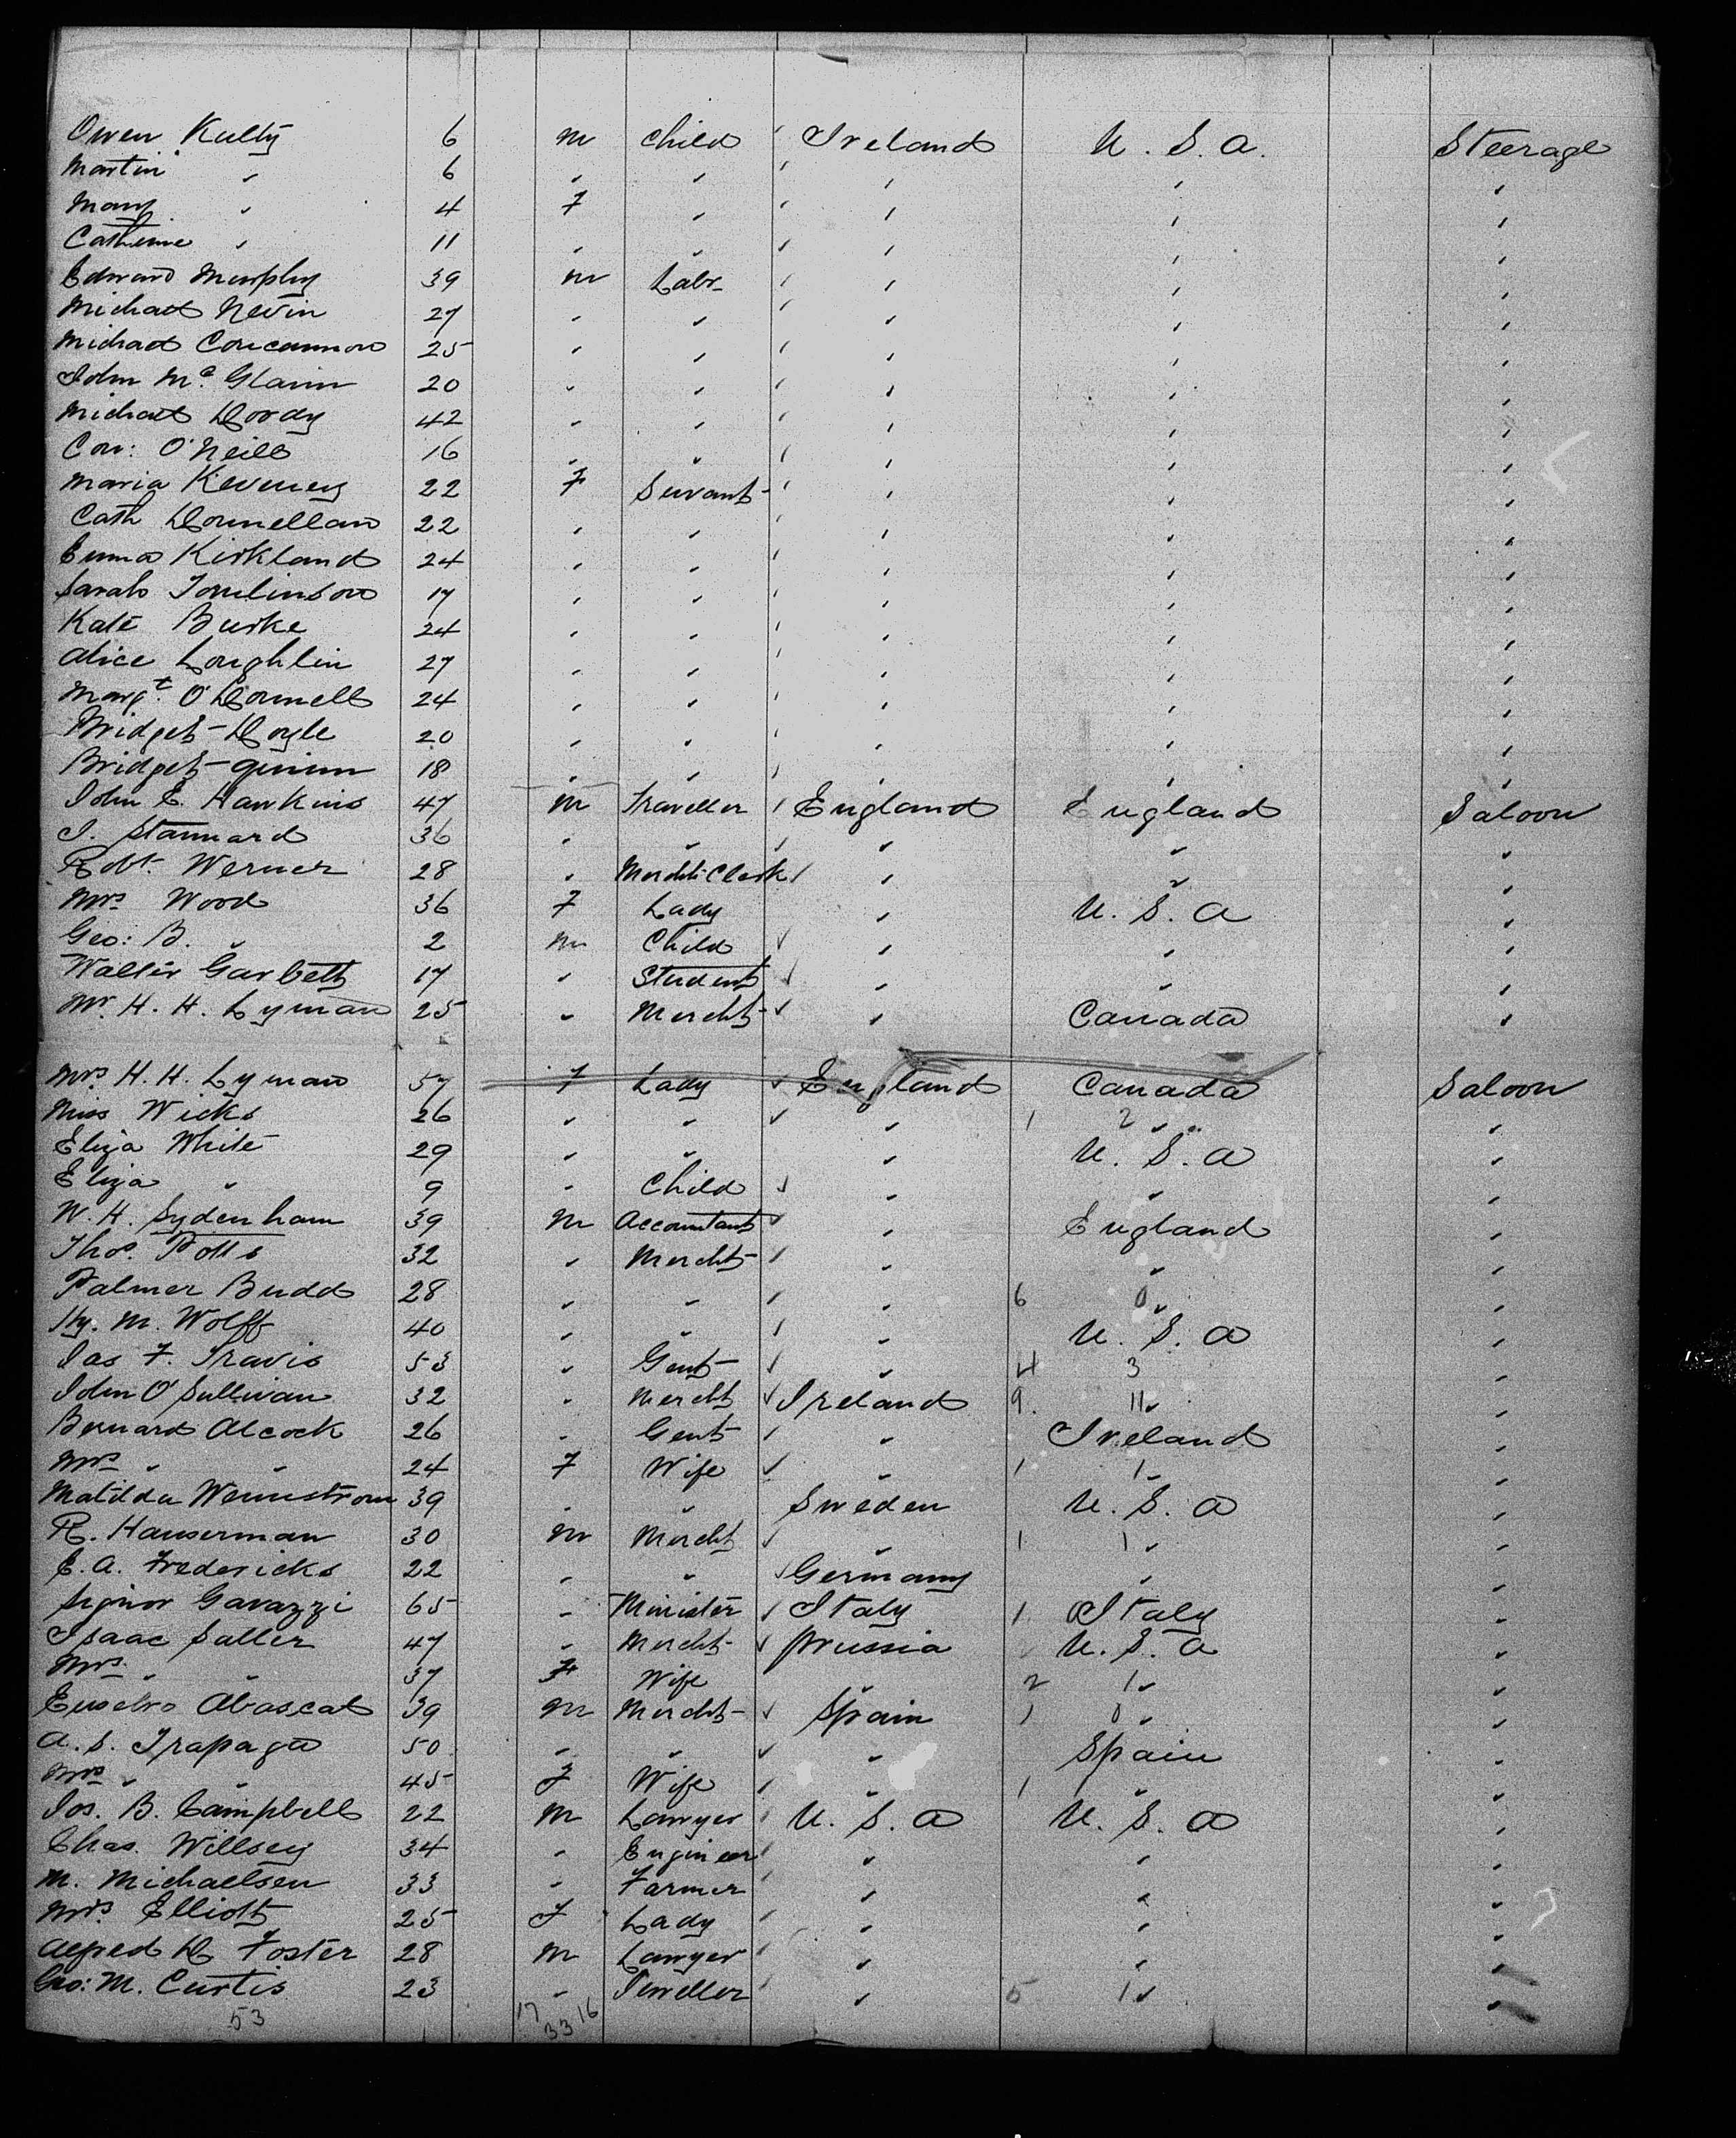 Owen Kulty 6 m Child Ireland U.S.a. Steerage
Martin " 6 " " " " "
Mary " 4 F " " " "
Catherine " 11 " " " " "
Edward Murphy 39 m Labr " " "
Michael Nevin 27 " " " " "
Michael Concannon 25 " " " " "
John Mc. Glann 20 " " " " "
Michael Doody 42 " " " " "
Con: O'Neill 16 " " " " "
Maria Keveney 22 F Servant " " "
Cath Donnellan 22 " " " " "
Emma Kirkland 24 " " " " "
Sarah Tomlinson 17 " " " " "
Kate Burke 24 " " " " "
Alice Loughlin 27 " " " " "
Margt. O'Donnell 24 " " " " "
Bridget Doyle 20 " " " " "
Bridget Quinn 18 " " " " "
John E. Hawkins 47 m Traveller England England Saloon
J. Stannard 36 " " " " "
Robt. Werner 28 " Mercht: Clerk " " "
Mrs Wood 36 F Lady " U.S.a "
Geo: B. " 2 m Child " " "
Walter Garbett 17 " Student " " "
Mr. H. H. Lyman 25 " Mercht " Canada "
Mrs. H. H. Lyman 57 F Lady England Canada Saloon
Miss Wicks 26 " " " 1 2 " "
Eliza White 29 " " " U.S.a "
Eliza " 9 " Child " " "
W. H. Sydenham 39 m Accountant " England "
Thos. Potts 32 " Mercht " " "
Palmer Budd 28 " " " 6 0 " "
Hy. M. Wolff 40 " " " U.S.a "
Jas F. Travis 53 " Gent " 4 3 "
John O'Sullivan 32 " Mercht Ireland 9 11 " "
Bernard Alcock 26 " Gent " Ireland "
Mrs " " 24 F Wife " 1 1 " "
Matilda Wennstrom 39 " " Sweden U.S.a "
R. Hauserman 30 m Mercht " 1 1 " "
E. A. Fredericks 22 " " Germany " "
Signor Gavazzi 65 " Minister Italy 1 0 Italy "
Isaac Saller 47 " Mercht Prussia U.S.a "
Mrs. " " 37 F Wife " 2 1 " "
Eusebio Abascal 39 m Mercht Spain 1 0 " "
A. S. Trapaga 50 " " " Spain "
Mrs " " 45 F Wife " 1 " "
Jos. B. Campbell 22 m Lawyer U.S.a U.S.a "
Chas. Willsey 34 " Engineer " " "
M. Michaelsen 33 " Farmer " " "
Mrs. Elliott 25 F Lady " " "
Alfred D Foster 28 m Lawyer " " "
Geo: M. Curtis 23 " Jeweller " 5 1 " "
53 17 33 16